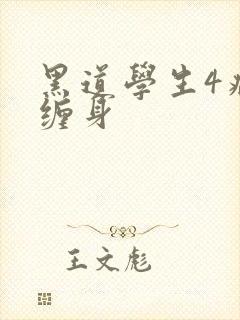 黑道學生4
缠身
王文彪